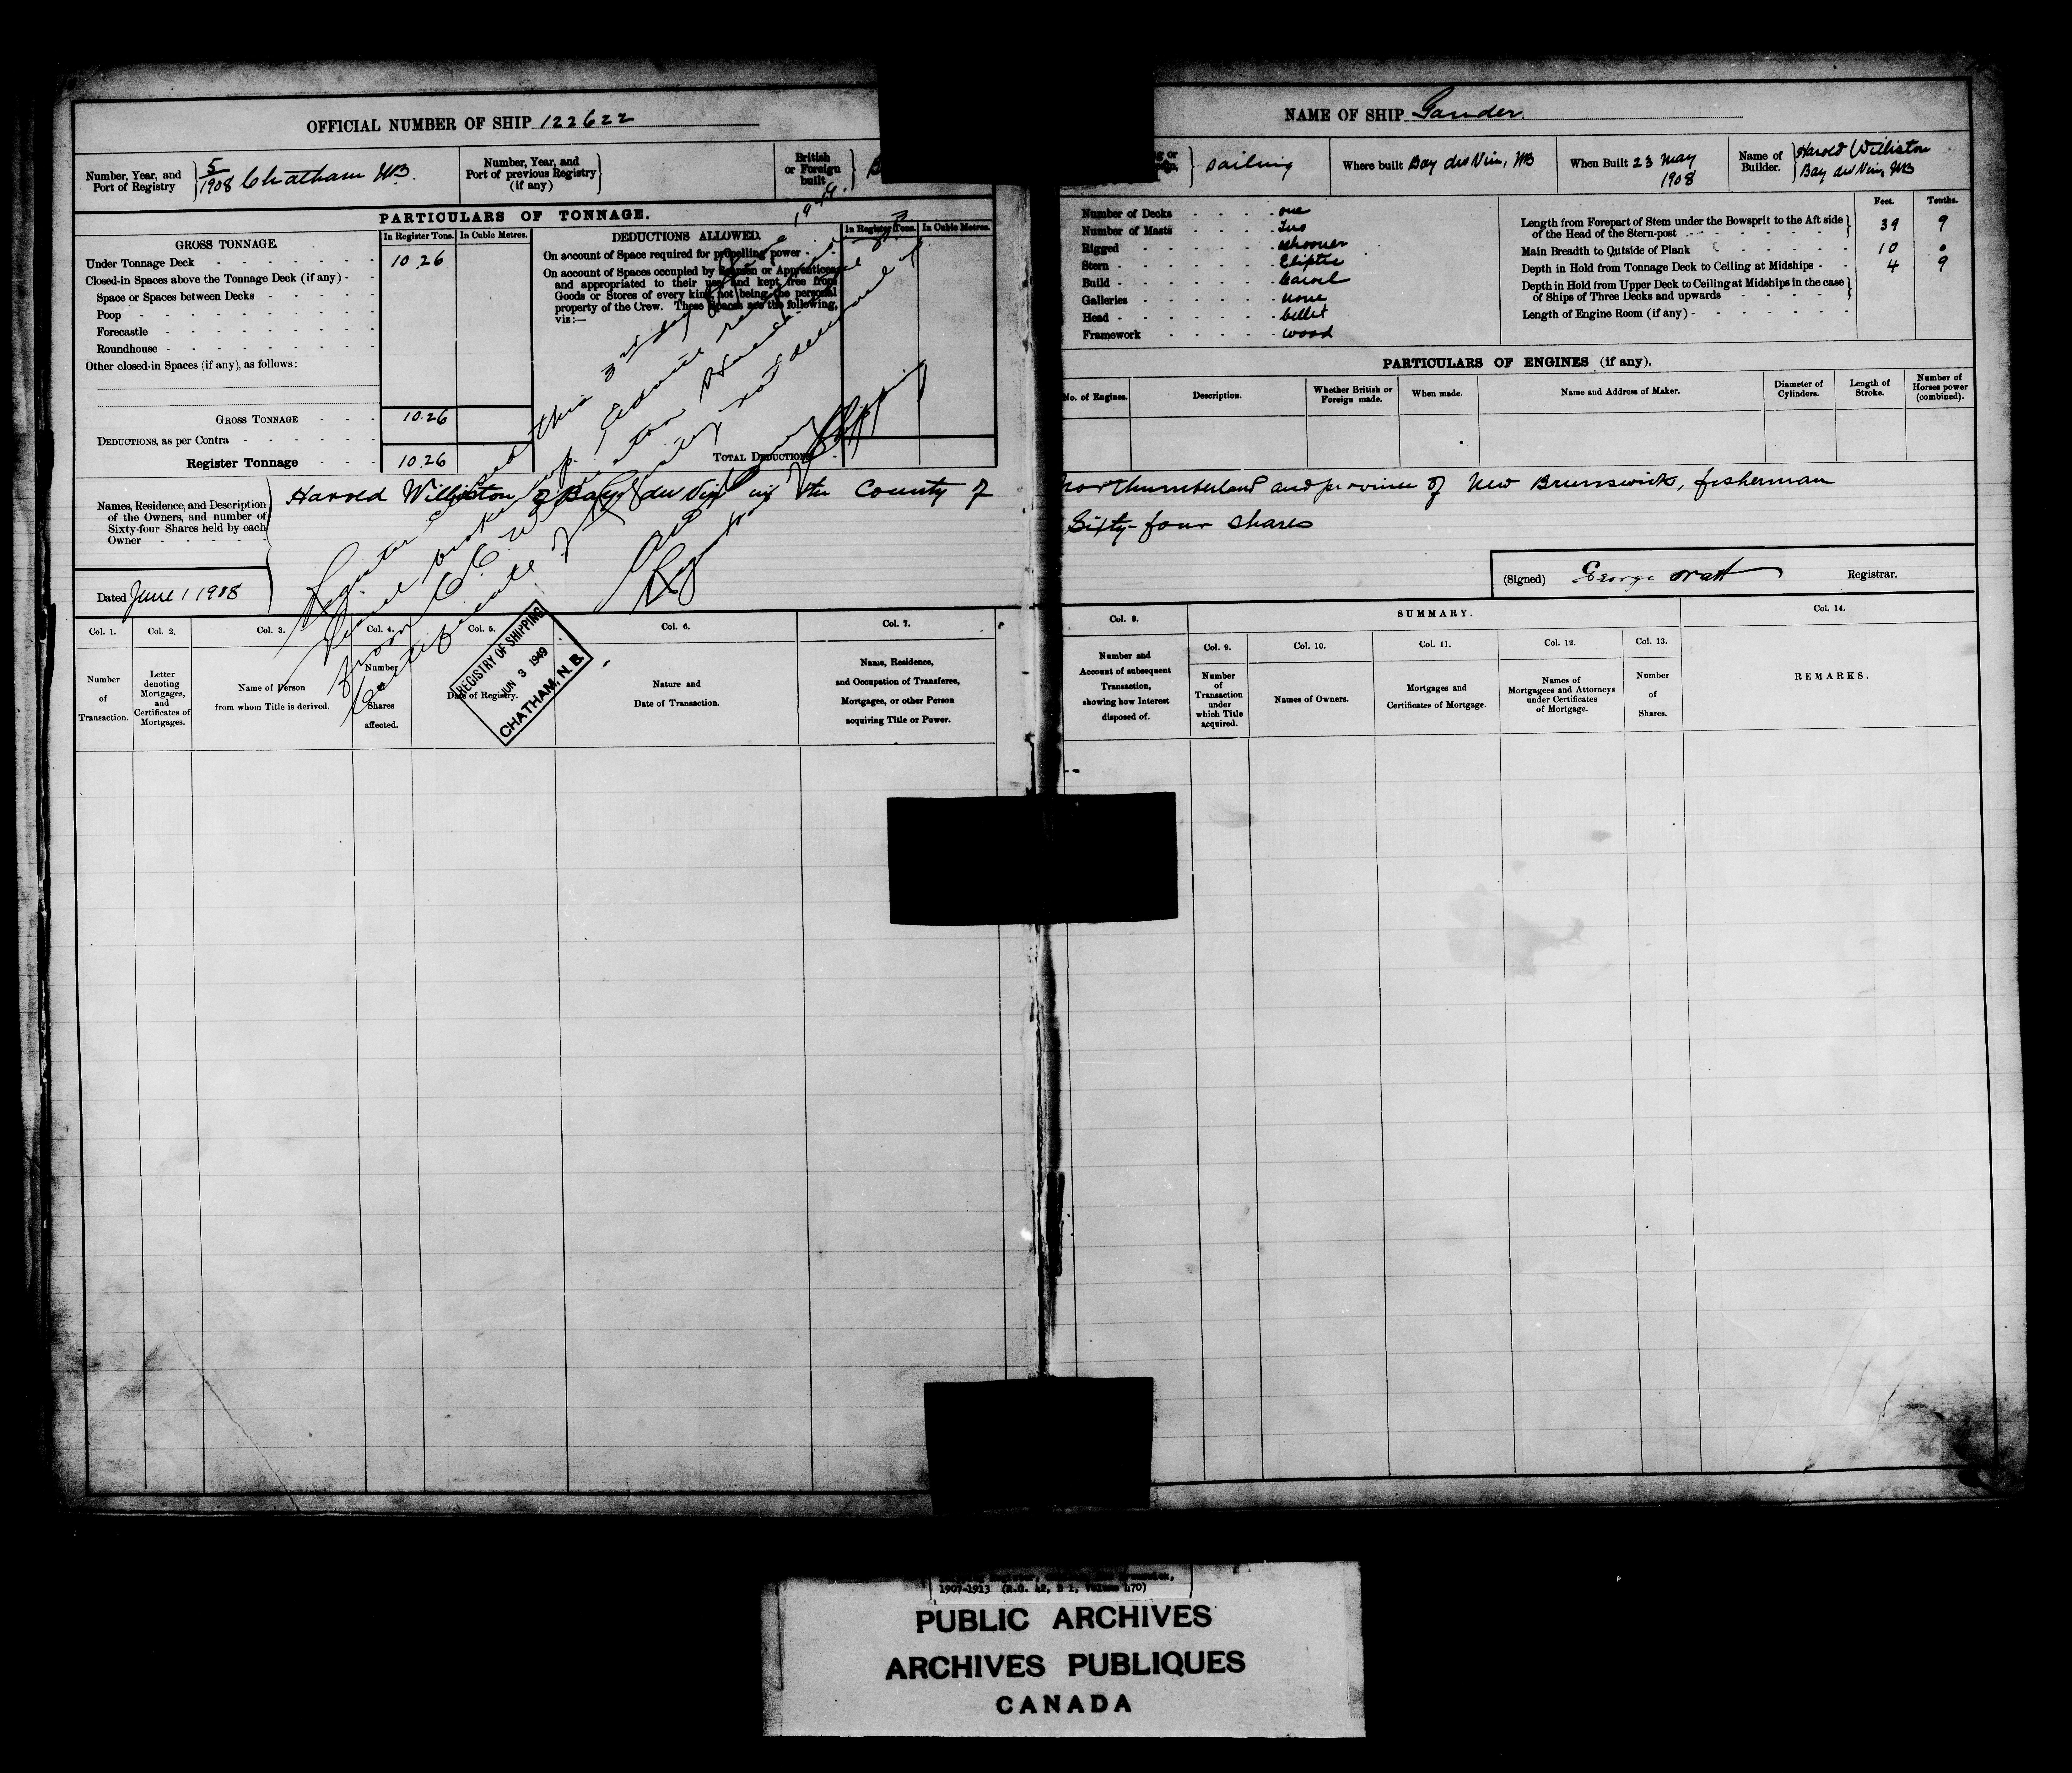 OFFICIAL NUMBER OF SHIP 122622
NAME OF SHIP Gander
Number, Year, and Port of Registry 5/1908 Chatham NB.
Number, Year, and Port of previous Registry (if any)
British or Foreign built
sailing
Where built Bay du Vin, NB
When Built 23 May 1908
Name of Builder. Harold Williston Bay du Vin, NB
PARTICULARS OF TONNAGE.
GROSS TONNAGE.
In Register Tons.
In Cubic Metres.
Under Tonnage Deck 10.26
Closed-in Spaces above the Tonnage Deck (if any) -
Space or Spaces between Decks
Poop
Forecastle
Roundhouse
Other closed-in Spaces (if any), as follows:
GROSS TONNAGE 10.26
DEDUCTIONS, as per Contra
Register Tonnage 10.26
DEDUCTIONS ALLOWED.
In Register Tons.
In Cubic Metres.
On account of Space required for propelling power
On account of Spaces occupied by Seamen or Apprentices
and appropriated to their use, and kept free from
Goods or Stores of every kind, not being the personal
property of the Crew. These Spaces are the following,
viz:—
TOTAL DEDUCTIONS
Number of Decks one
Number of Masts Two
Rigged schooner
Stern Eliptic
Build Carvel
Galleries none
Head billet
Framework wood
Feet. Tenths.
Length from Forepart of Stem under the Bowsprit to the Aft side of the Head of the Stern-post 39 9
Main Breadth to Outside of Plank 10 0
Depth in Hold from Tonnage Deck to Ceiling at Midships 4 9
Depth in Hold from Upper Deck to Ceiling at Midships in the case of Ships of Three Decks and upwards
Length of Engine Room (if any)
PARTICULARS OF ENGINES (if any).
No. of Engines.
Description.
Whether British or Foreign made.
When made.
Name and Address of Maker.
Diameter of Cylinders.
Length of Stroke.
Number of Horses power (combined).
Names, Residence, and Description
of the Owners, and number of
Sixty-four Shares held by each
Owner
Harold Williston of Bay du Vin in the County of Northumberland and province of New Brunswick, fisherman
Sixty-four shares
Dated June 1 1908
(Signed) George Watt Registrar.
Register closed this 3rd day of June 1949.
Certificate of Registry not delivered up
Registrar of Shipping
REGISTRY OF SHIPPING
JUN 3 1949
CHATHAM, N. B.
Col. 1.
Number of Transaction.
Col. 2.
Letter denoting Mortgages, and Certificates of Mortgages.
Col. 3.
Name of Person from whom Title is derived.
Col. 4.
Number Shares affected.
Col. 5.
Date of Registry.
Col. 6.
Nature and Date of Transaction.
Col. 7.
Name, Residence, and Occupation of Transferee, Mortgages, or other Person acquiring Title or Power.
Col. 8.
Number and Account of subsequent Transaction, showing how Interest disposed of.
SUMMARY.
Col. 9.
Number of Transaction under which Title acquired.
Col. 10.
Names of Owners.
Col. 11.
Mortgages and Certificates of Mortgage.
Col. 12.
Names of Mortgagees and Attorneys under Certificates of Mortgage.
Col. 13.
Number of Shares.
Col. 14.
REMARKS.
1907-1913 (R.G. 42, D 1, Volume 470)
PUBLIC ARCHIVES
ARCHIVES PUBLIQUES
CANADA